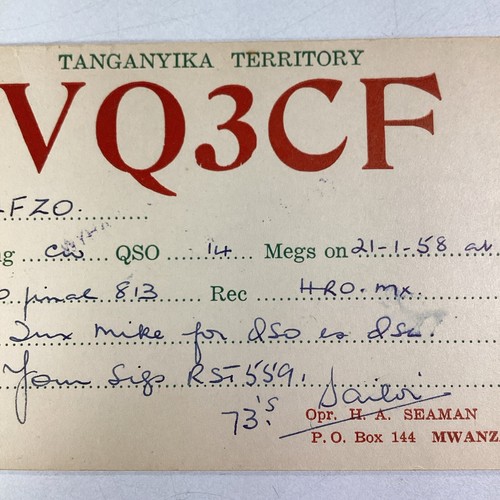 TANGANYIKA TERRITORY
VQ3CF
FZO.
g cw QSO 14 Megs on 21-1-58 at
final 813 Rec HRO. mx
Tnx Mike for QSO es QSL.
Your Sigs RST 559.
73's.
Opr. H. A. SEAMAN
P. O. Box 144 MWANZ